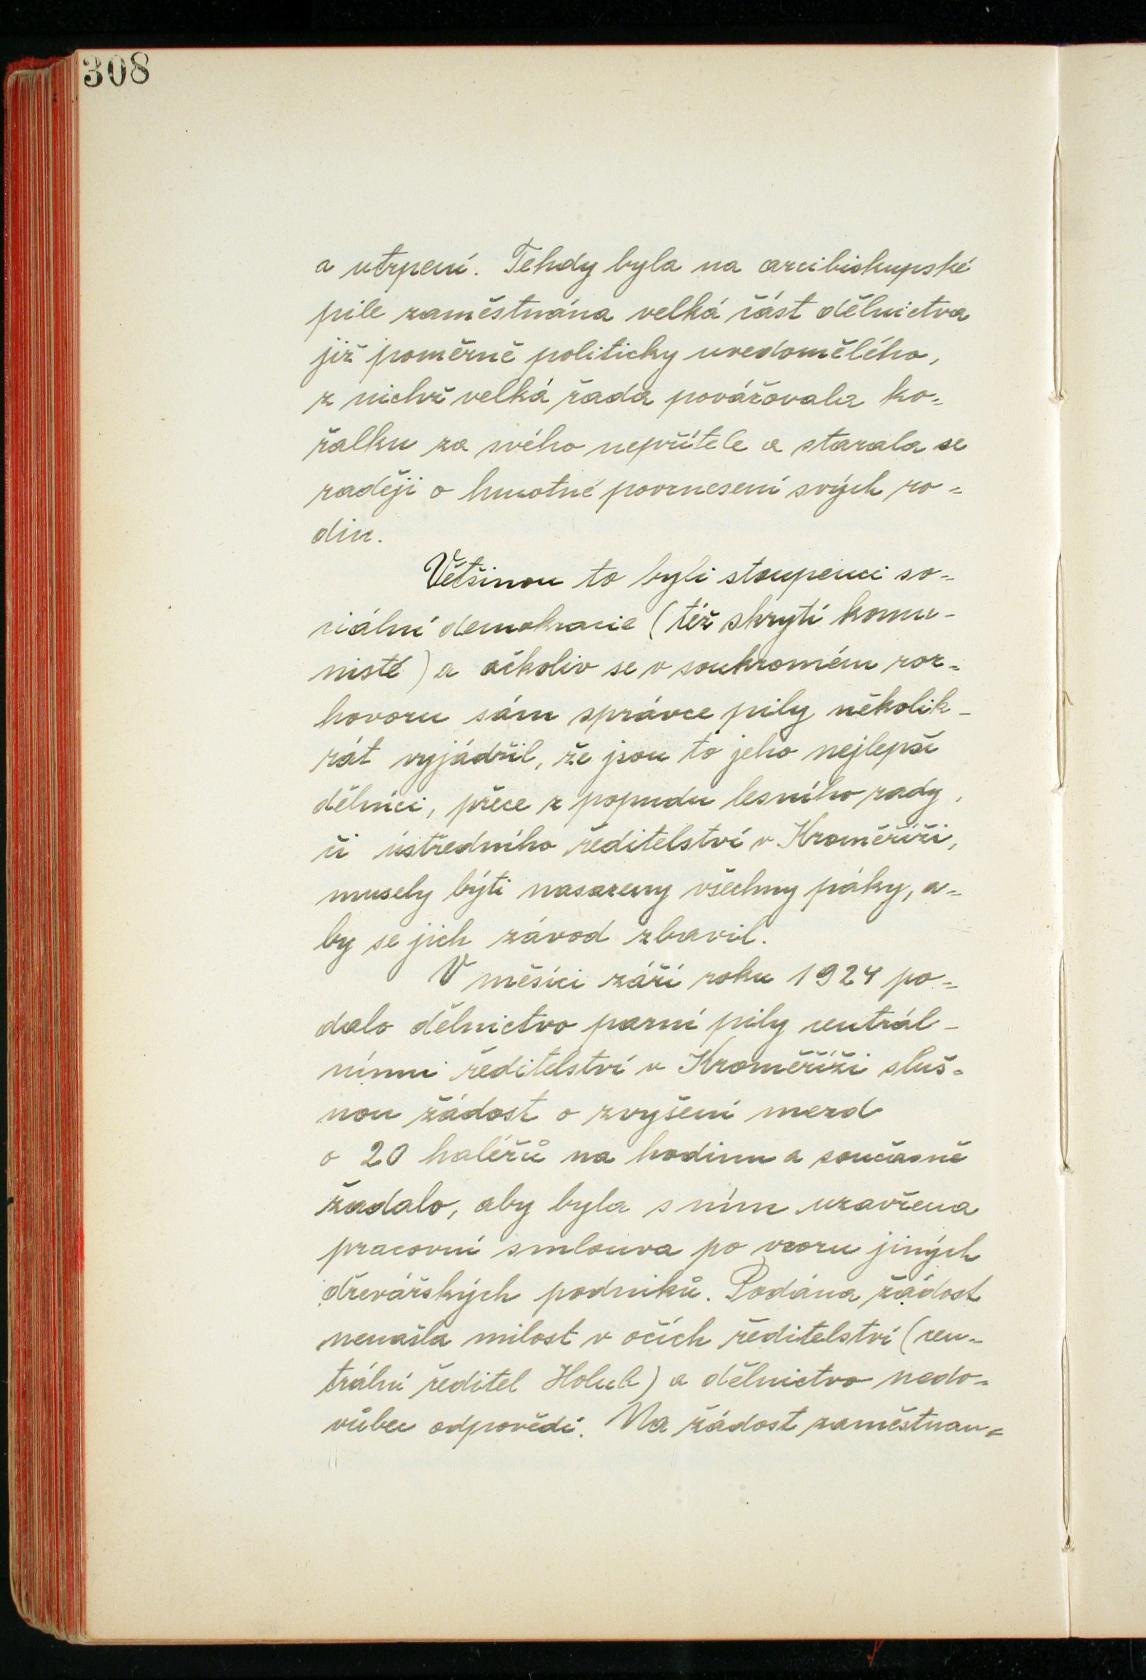 308
a utrpení. Tehdy byla na arcibiskupské
pile zaměstnána velká část dělnictva
již poměrně politicky uvedomělého,
z nichž velká řada považovala ko-
řalku za svého nepřítele a starala se
raději o hmotné povznesení svých ro-
din.
Většinou to byli stoupenci so-
ciální demokracie (též skrytí komu-
nisté) a ačkoliv se v soukromém roz-
hovoru sám správce pily několik-
rát vyjádřil, že jsou to jeho nejlepší
dělníci, přece z popudu lesního rady,
či ústředního ředitelství v Kroměříži,
musely býti nasazeny všechny páky, a-
by se jich závod zbavil.
V měsíci září roku 1924 po-
dalo dělnictvo parní pily centrál-
nímu ředitelství v Kroměříži sluš-
nou žádost o zvýšení mezd
o 20 haléřů na hodinu a současně
žádalo, aby byla s ním uzavřena
pracovní smlouva po vzoru jiných
dřevařských podniků. Podána žádost
nenašla milost v očích ředitelství (cen-
trální ředitel Holub) a dělnictvo nedo-
vůbec odpovědi. Na žádost zaměstnan-